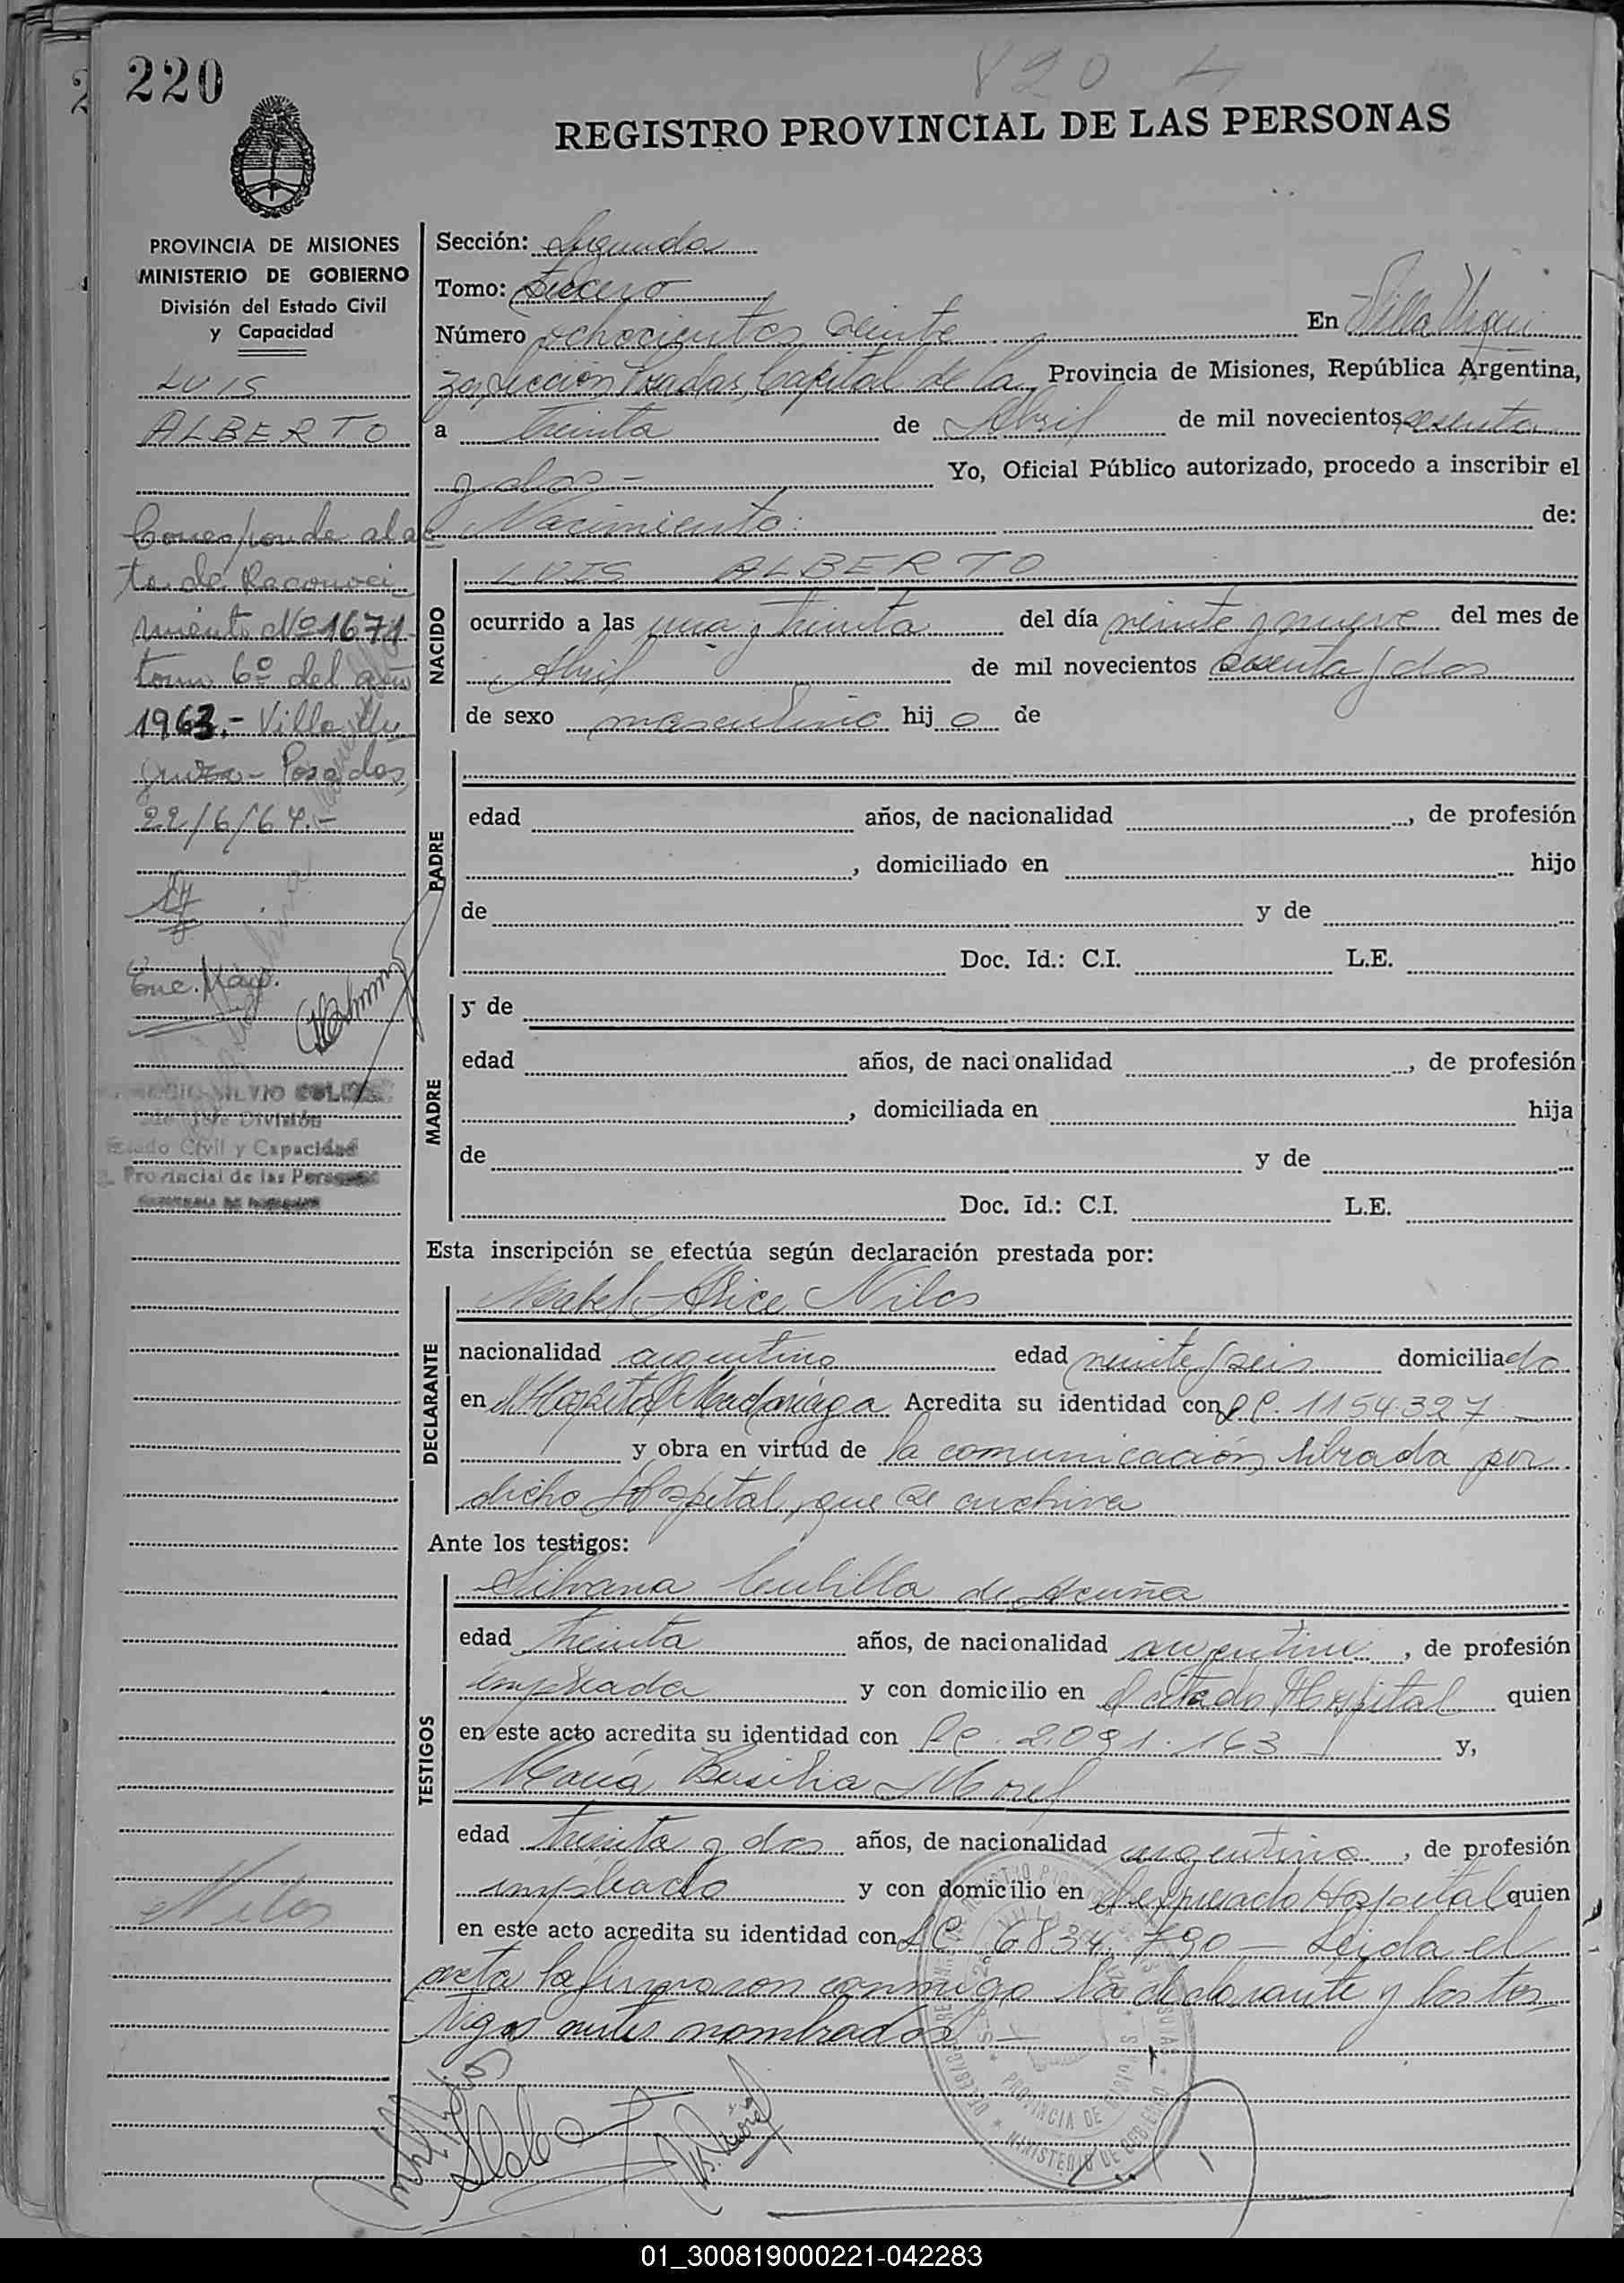 220
820
REGISTRO PROVINCIAL DE LAS PERSONAS
PROVINCIA DE MISIONES
MINISTERIO DE GOBIERNO
División del Estado Civil
y Capacidad
LUIS
ALBERTO
Corresponde al ac
ta de Reconoci
miento Nº 1671
tomo 6º del año
1963.- Villa Ur
quiza - Posadas
22/6/64.-
Enc. Mayo.
SILVIO
Jefe División
Estado Civil y Capacidad
Provincial de las Personas
Nilos
Sección: Segunda
Tomo: Tercero
Número ochocientos veinte En Villa Urqui
za, Sección Posadas, Capital de la Provincia de Misiones, República Argentina,
a treinta de Abril de mil novecientos sesenta
y dos - Yo, Oficial Público autorizado, procedo a inscribir el
Nacimiento de:
NACIDO
LUIS ALBERTO
ocurrido a las una y treinta del día veinte y nueve del mes de
Abril de mil novecientos sesenta y dos
de sexo masculino hijo de
PADRE
edad años, de nacionalidad , de profesión
, domiciliado en hijo
de y de
Doc. Id.: C.I. L.E.
MADRE
y de
edad años, de nacionalidad , de profesión
, domiciliada en hija
de y de
Doc. Id.: C.I. L.E.
Esta inscripción se efectúa según declaración prestada por:
DECLARANTE
Mabel Alice Nilos
nacionalidad argentina edad veinte y seis domiciliado
en el Hospital Madariaga Acredita su identidad con L.C. 1154.327
y obra en virtud de la comunicación librada por
dicho Hospital, que se archiva
Ante los testigos:
TESTIGOS
Silvana de Acuña
edad treinta años, de nacionalidad argentina, de profesión
empleada y con domicilio en el citado Hospital quien
en este acto acredita su identidad con L.C. 2.091.163 y,
María Basilia Morel
edad treinta y dos años, de nacionalidad argentina, de profesión
empleada y con domicilio en el expresado Hospital quien
en este acto acredita su identidad con L.C. 6834.790 - Leída el
acta la firmaron conmigo la declarante y los tes
tigos antes nombrados -
PROVINCIA DE MISIONES
MINISTERIO DE GOBIERNO
01_300819000221-042283